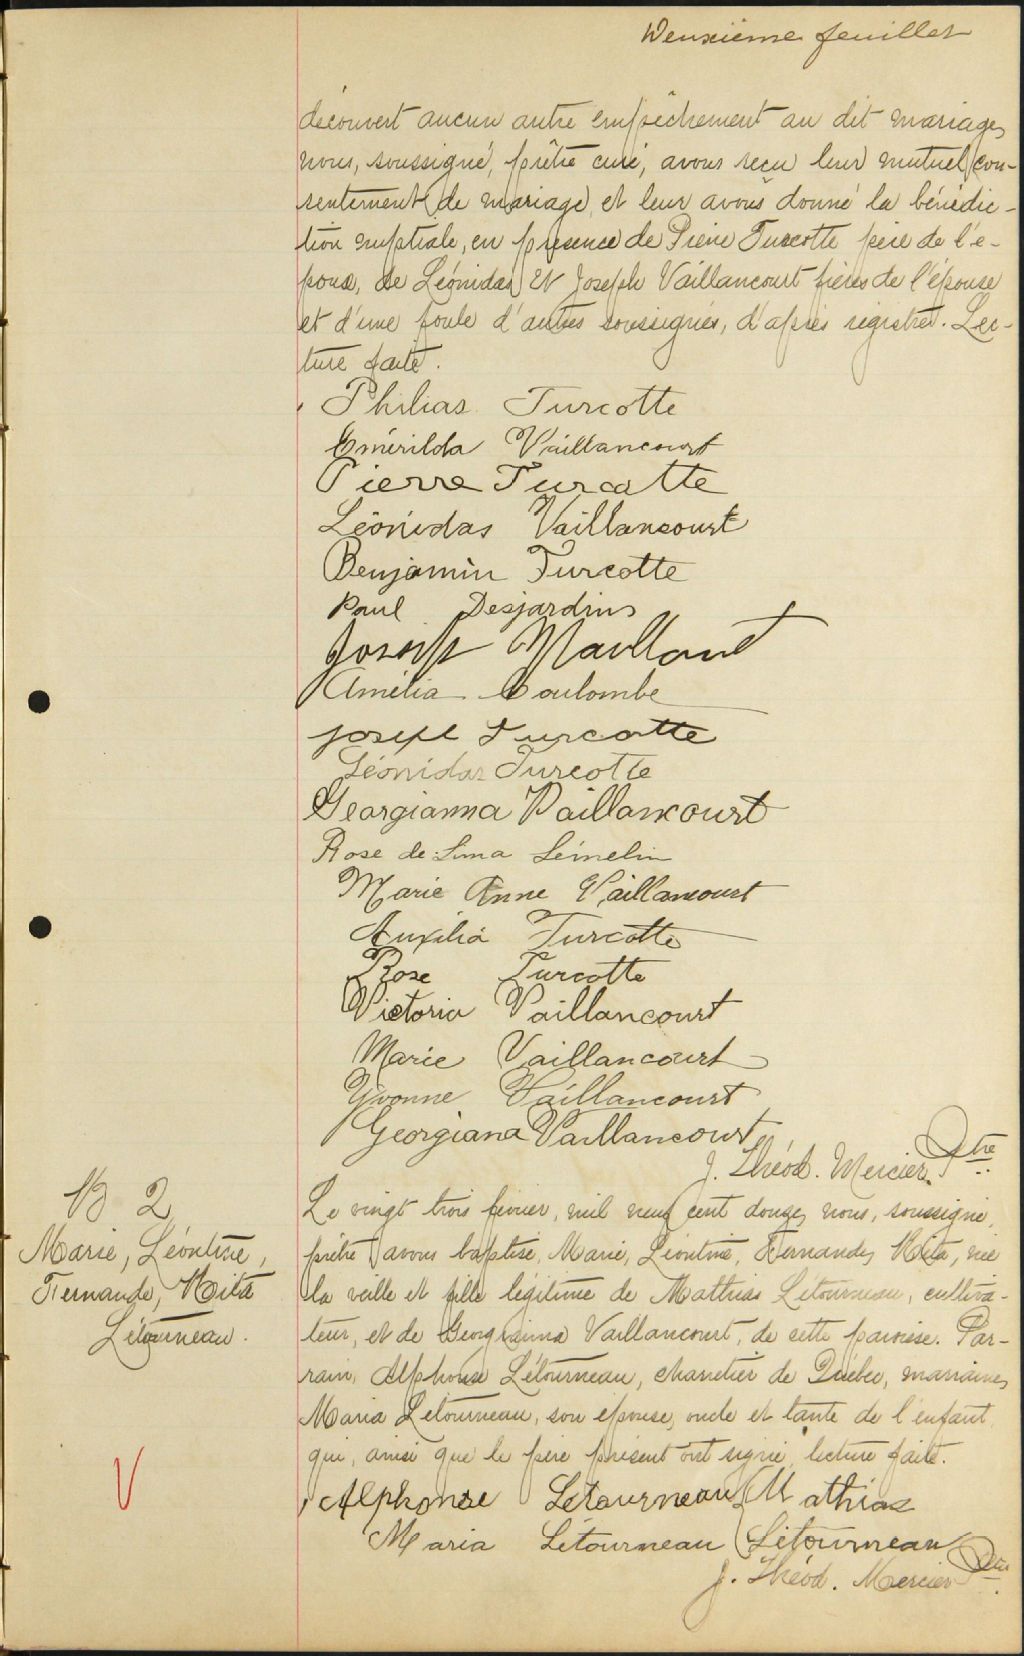 Deuxième feuillet
découvert aucun autre empêchement au dit mariage,
nous, soussigné, prêtre curé, avons reçu leur mutuel con-
sentement de mariage, et leur avons donné la bénédic-
tion nuptiale, en présence de Pierre Turcotte père de l'é-
poux, de Léonidas et Joseph Vaillancourt frères de l'épouse
et d'une foule d'autres soussignés, d'après registre. Lec-
ture faite.
Philias Turcotte
Emérilda Vaillancourt
Pierre Turcotte
Léonidas Vaillancourt
Benjamin Turcotte
Paul Desjardins
Joseph
Amélia Coulombe
Joseph Turcotte
Léonidas Turcotte
Georgianna Vaillancourt
Rose de Lima Lémelin
Marie Anne Vaillancourt
Auxilia Turcotte
Rose Turcotte
Victoria Vaillancourt
Marie Vaillancourt
Yvonne Vaillancourt
Georgiana Vaillancourt
J. Théod. Mercier, Ptre
B 2
Marie, Léontine,
Fernande, Mita
Létourneau.
Le vingt trois février, mil neuf cent douze, nous, soussigné,
prêtre avons baptisé, Marie, Léontine, Fernande, Mita, née
la veille et fille légitime de Mathias Létourneau, cultiva-
teur, et de Georgianna Vaillancourt, de cette paroisse. Par-
rain, Alphonse Létourneau, charretier de Québec, marraine,
Maria Létourneau, son épouse, oncle et tante de l'enfant,
qui, ainsi que le père présent ont signé, lecture faite.
Alphonse Létourneau Mathias
Maria Létourneau Létourneau
J. Théod. Mercier Ptre
V